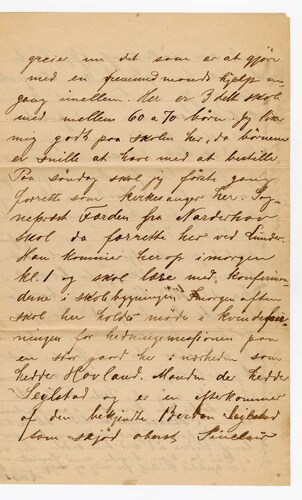 greier nu det som er at gjøre
med en fremmed mands hjelp en
gang imellem. Her er 3delt skole
med mellem 60 a 70 børn. Jeg liker
mig godt paa skolen her, da børnene
er snille at have med at bestille.
Paa søndag skal jeg første gang
forrette som kirkesanger her. Sog-
nepræst Færden fra Norderhov
skal da forrette her ved Lunder.
Han kommer herop imorgen
kl. 1 og skal læse med konfirman-
dene i skolebygningen. Imorgen aften
skal her holdes møde i kvindefor-
ningen for hedningemissionen paa
en stor gaard her i nærheden som
hedder Hovland. Manden der hedder
Sejlstad og er en efterkommer
af den bekjendte Berdon Sejelstad
som skjød oberst Sinclair